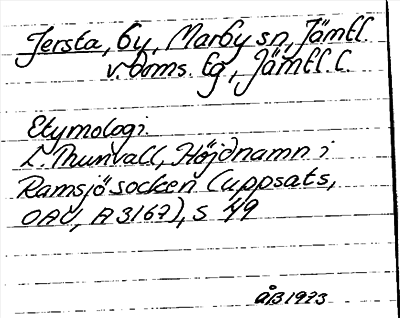 Jersta, by, Marby sn, Jämtl.
v. Oms. tg, Jämtl. l.
Etymologi.
L. Thunvall, Höjdnamn i
Ramsjö socken (uppsats,
OAU, A 3167), S 49
ÅB 1973